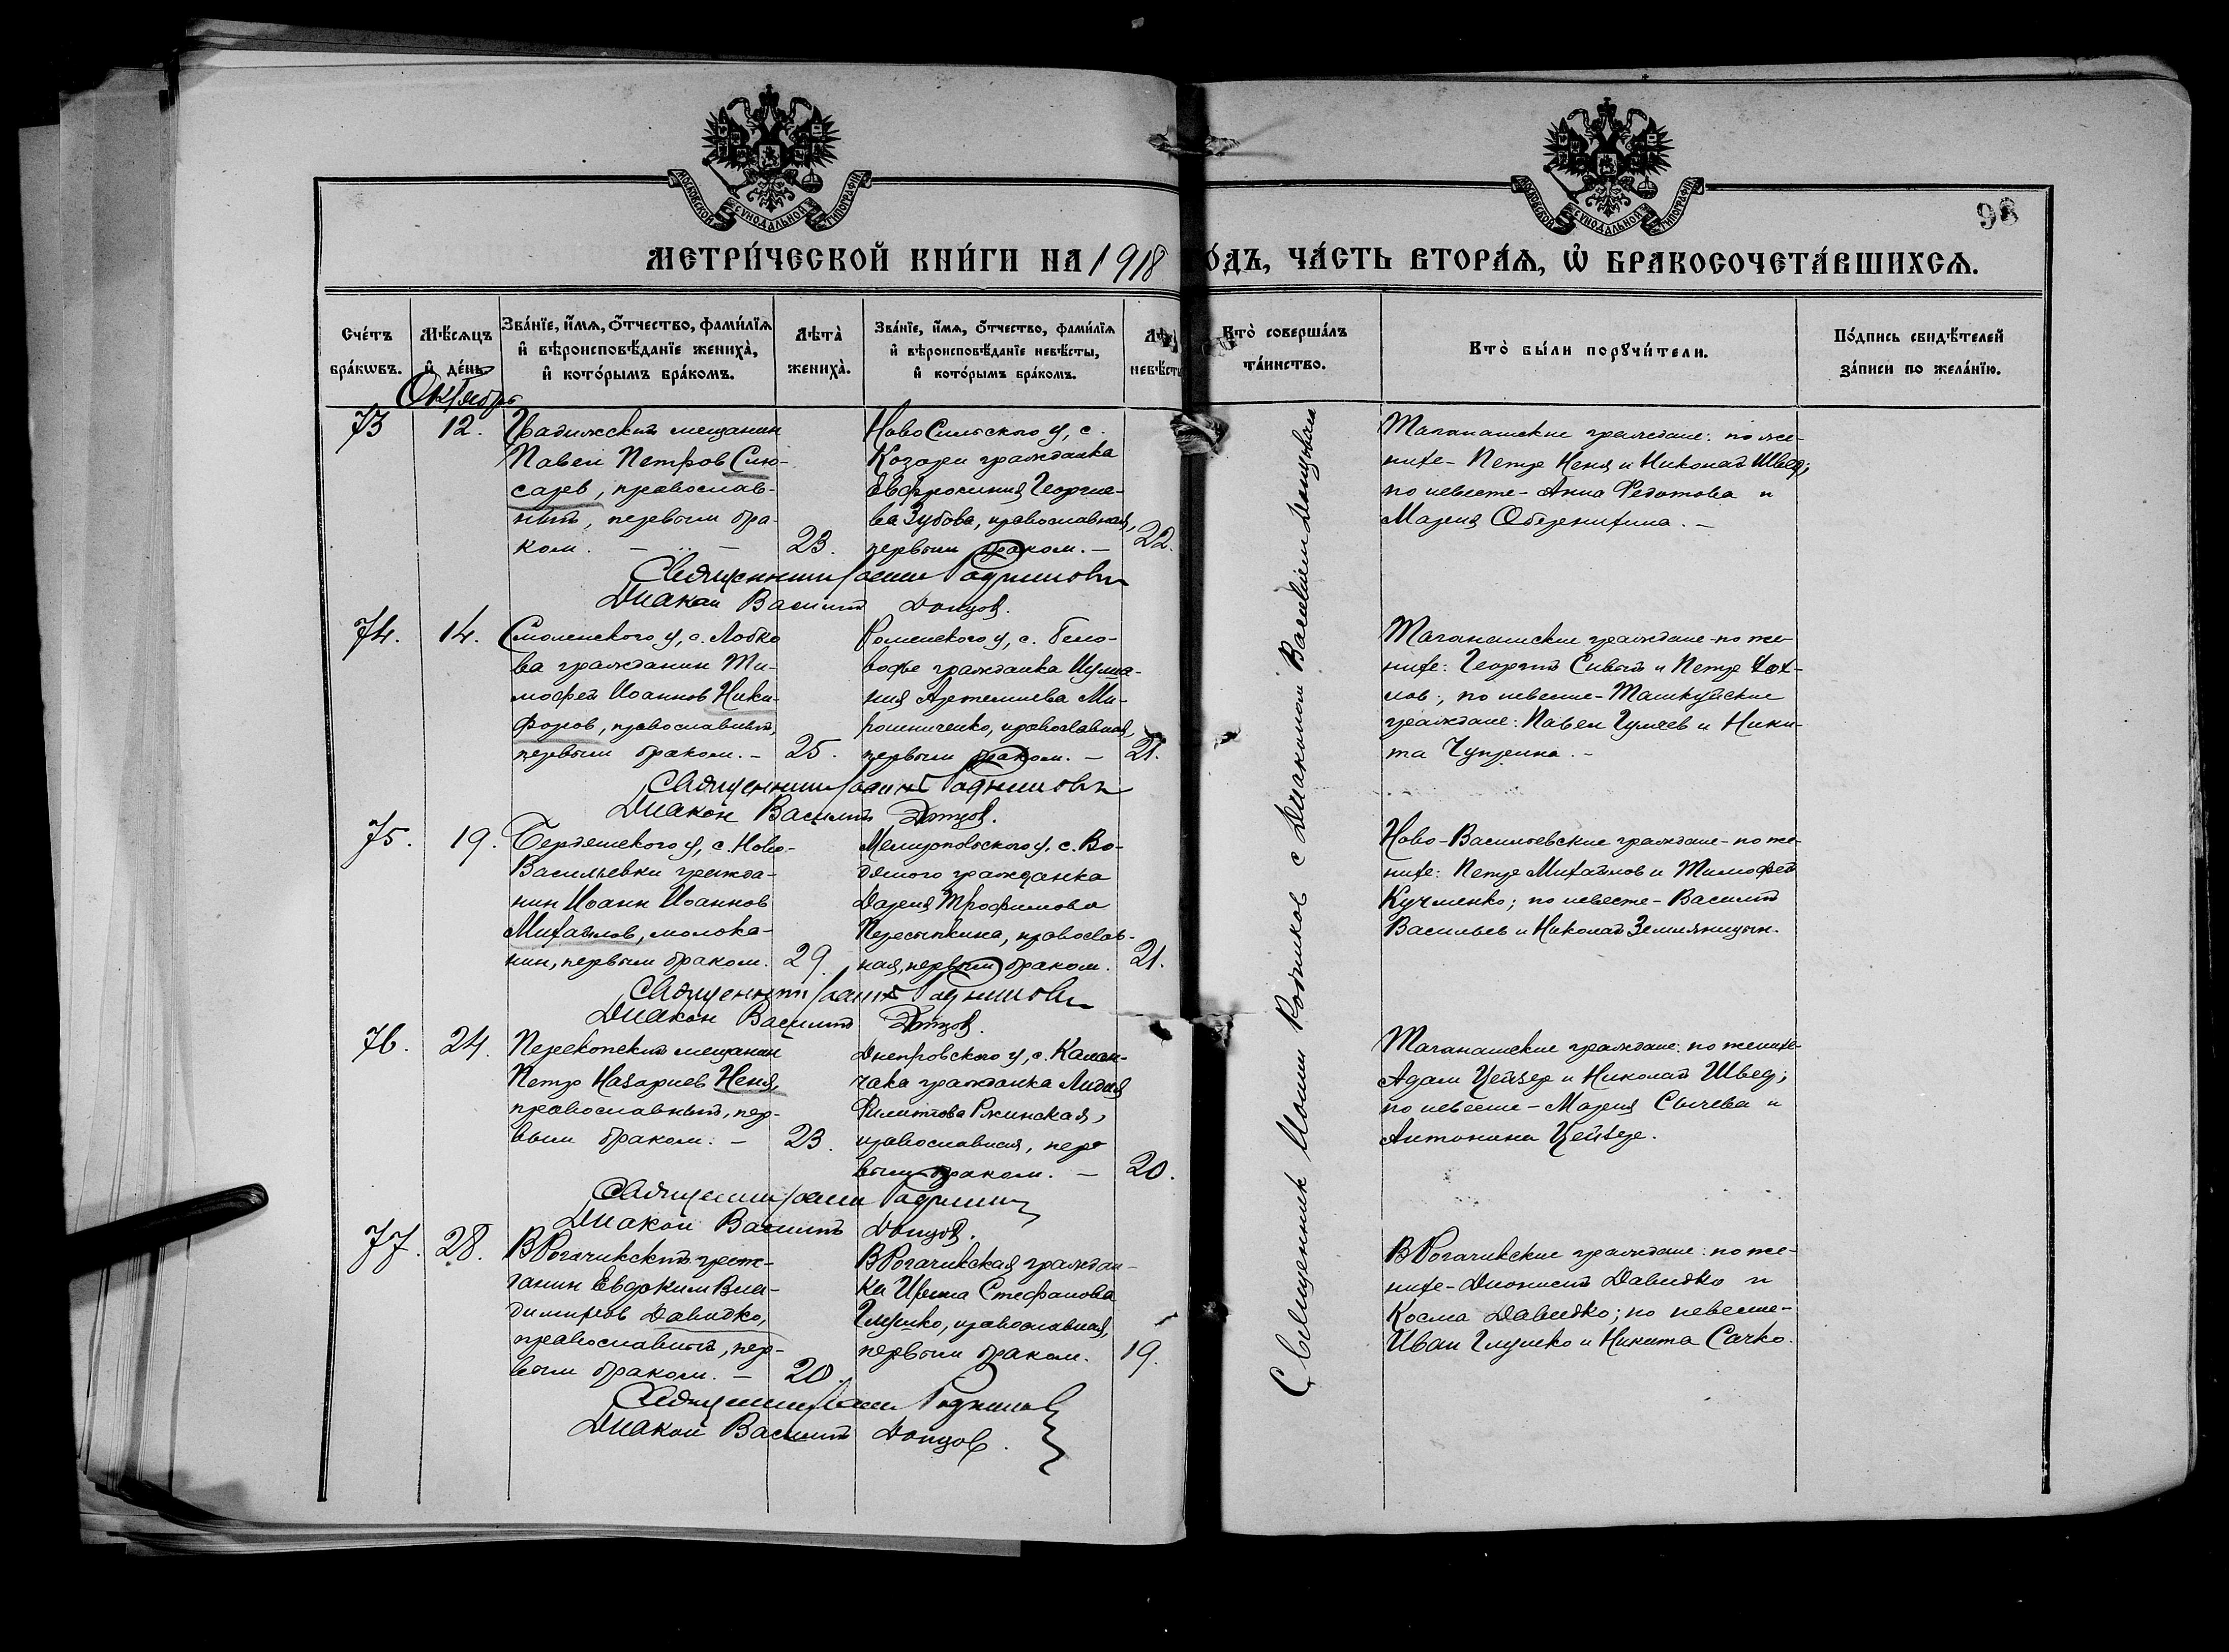 МОСКОВСКОЙ СѴНОДАЛЬНОЙ ТИПОГРАФІИ
МОСКОВСКОЙ СѴНОДАЛЬНОЙ ТИПОГРАФІИ
98
МЕТРИ́ЧЕСКОЙ КНИ́ГИ НА 1918 О́ДЪ, ЧА́СТЬ ВТОРА́Ѧ, Ѡ҆ БРАКОСОЧЕТА́ВШИХСѦ.
Сче́тъ бра́кѡвъ.
Мѣ́сѧцъ и҆ де́нь
Зва́нїе, и҆́мѧ, ѻ҆́тчество, фами́лїѧ и҆ вѣроисповѣ́данїе жениха̀, и҆ кото́рымъ бра́комъ.
Лѣта̀ жениха̀.
Зва́нїе, и҆́мѧ, ѻ҆́тчество, фами́лїѧ и҆ вѣроисповѣ́данїе невѣ́сты, и҆ кото́рымъ бра́комъ.
невѣ́сты
Кто̀ соверша́лъ та́инство.
Кто̀ бы́ли порꙋчи́тели.
По́дпись свидѣ́телей за́писи по жела́нїю.
Октябрь
73
12.
мещанин
Павел Петров Слю-
сарев, православ-
ный, первым бра-
ком. —
23.
Новосильского у, с.
Козари гражданка
Евфросиния Георгие-
ва Зубова, православная,
первым браком. —
22.
Таганашские граждане: по же-
нихе - Петр Неня и Николай Швед;
по невесте - Анна Федотова и
Мария Обережнихина. —
Священник Иоанн
Диакон Василий Донцов.
74.
14.
Смоленского у, с. Лобко
ва гражданин Ти-
мофей Иоаннов Ники-
форов, православный,
первым браком. —
25.
Роменского у, с. Бело-
водье гражданка
ния Артемиева Ми-
рошниченко, православная,
первым браком. —
21.
Таганашские граждане - по же-
нихе: Георгий Сивый и Петр Хох-
лов; по невесте - Ташкуйские
граждане: Павел Гуляев и Ники-
та Чуприна. -
Священник Иоанн
Диакон Василий Донцов.
75.
19.
Бердянского у, с. Ново-
Васильевки гражда-
нин Иоанн Иоаннов
Михайлов, молока-
нин, первым браком.
29.
Мелитопольского у, с. Во-
дяного гражданка
Дария Трофимова
Пересыпкина, православ-
ная, первым браком.
21.
Ново-Васильевские граждане - по же-
нихе: Петр Михайлов и Тимофей
Кучменко; по невесте - Василий
Васильев и Николай Земляницын.
Священник Иоанн
Диакон Василий Донцов.
76.
24.
Перекопский мещанин
Петр Назариев Неня,
православный, пер-
вым браком. —
23.
Днепровского у, с. Калан-
чака гражданка Лидия
Филиппова Ржинская,
православная, пер-
вым браком. —
20.
Таганашские граждане: по женихе
Адам Цейзер и Николай Швед;
по невесте - Мария Сычева и
Антонина Цейзер.
Священник Иоанн
Диакон Василий Донцов.
77.
28.
В Рогачикский граж-
данин Евдоким Вла-
димиров Давидко,
православный, пер-
вым браком. —
20.
В Рогачикская граждан-
ка Ирина Стефанова
Глушко, православная,
первым браком.
19.
В Рогачикские граждане: по же-
нихе - Дионисий Давидко и
Косма Давидко; по невесте -
Иван Глушко и Никита Сачко.
Священник Иоанн
Диакон Василий Донцов.
Священник Иоанн с Диаконом Василием Донцовым